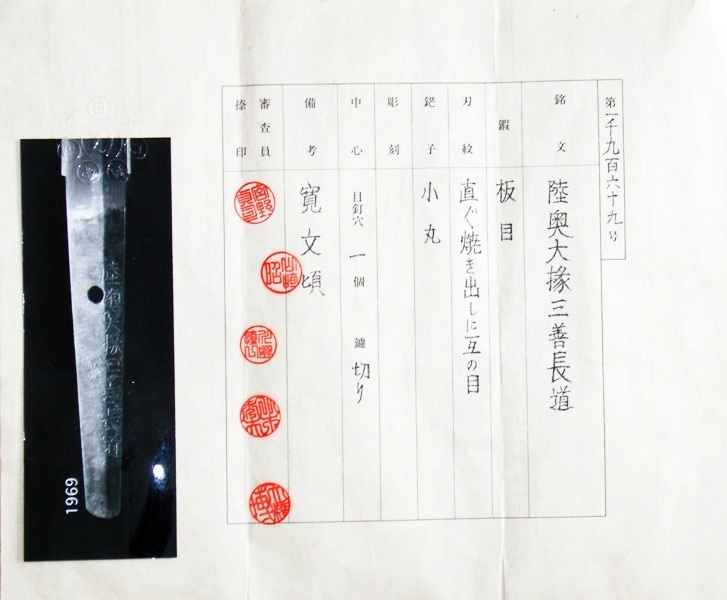 第一千九百六十九号
銘文 陸奥大掾三善長道
鍜 板目
刃紋 直ぐ焼き出しに互の目
鋩子 小丸
彫刻
中心 目釘穴 一個 鑢 切り
備考 寛文頃
審査員
捺印
1969